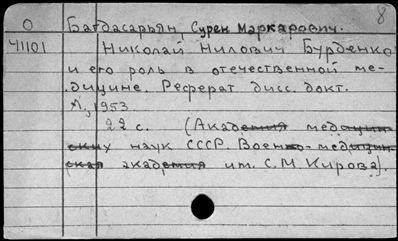 8
О Багдасарьян, Сурен Маркарович.
41101 Николай Нилович Бурденко
и его роль в отечественной ме-
дицине. Реферат дисс. докт.
Л., 1953
22 с. (Академия медицин-
ских наук СССР. Военно-медицин-
ская академия им. С.М. Кирова).